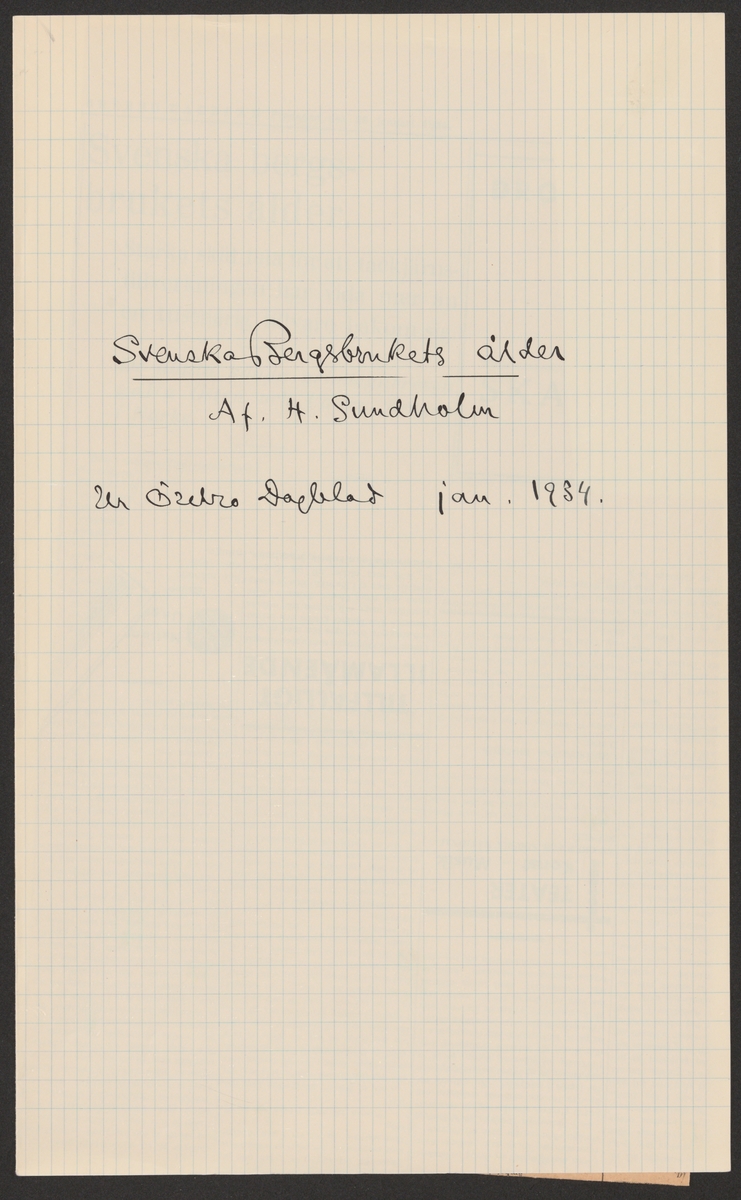 Svenska Bergsbrukets ålder
Af. H. Sundholm
Ur Örebro Dagblad jan. 1934.